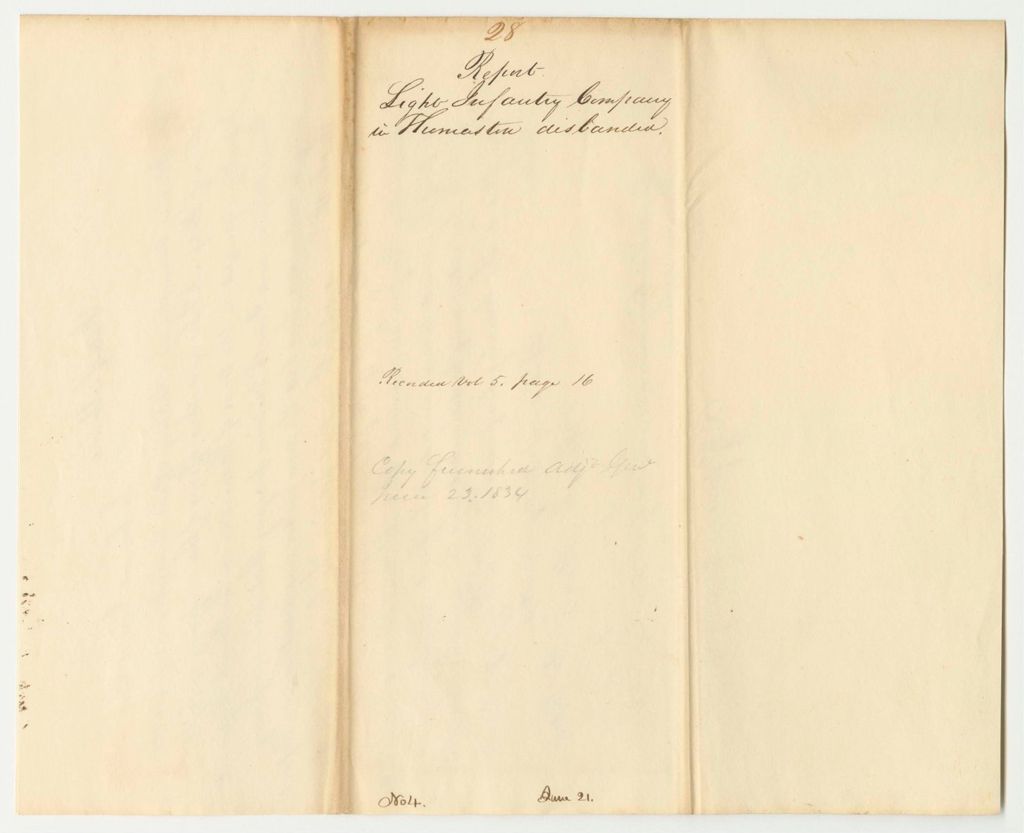 28
Report
Light Infantry Company
in Thomaston disbanded.
Recorded Vol 5. page 16
Copy furnished Adjt Genl
June 23. 1834
No 4.
June 21.